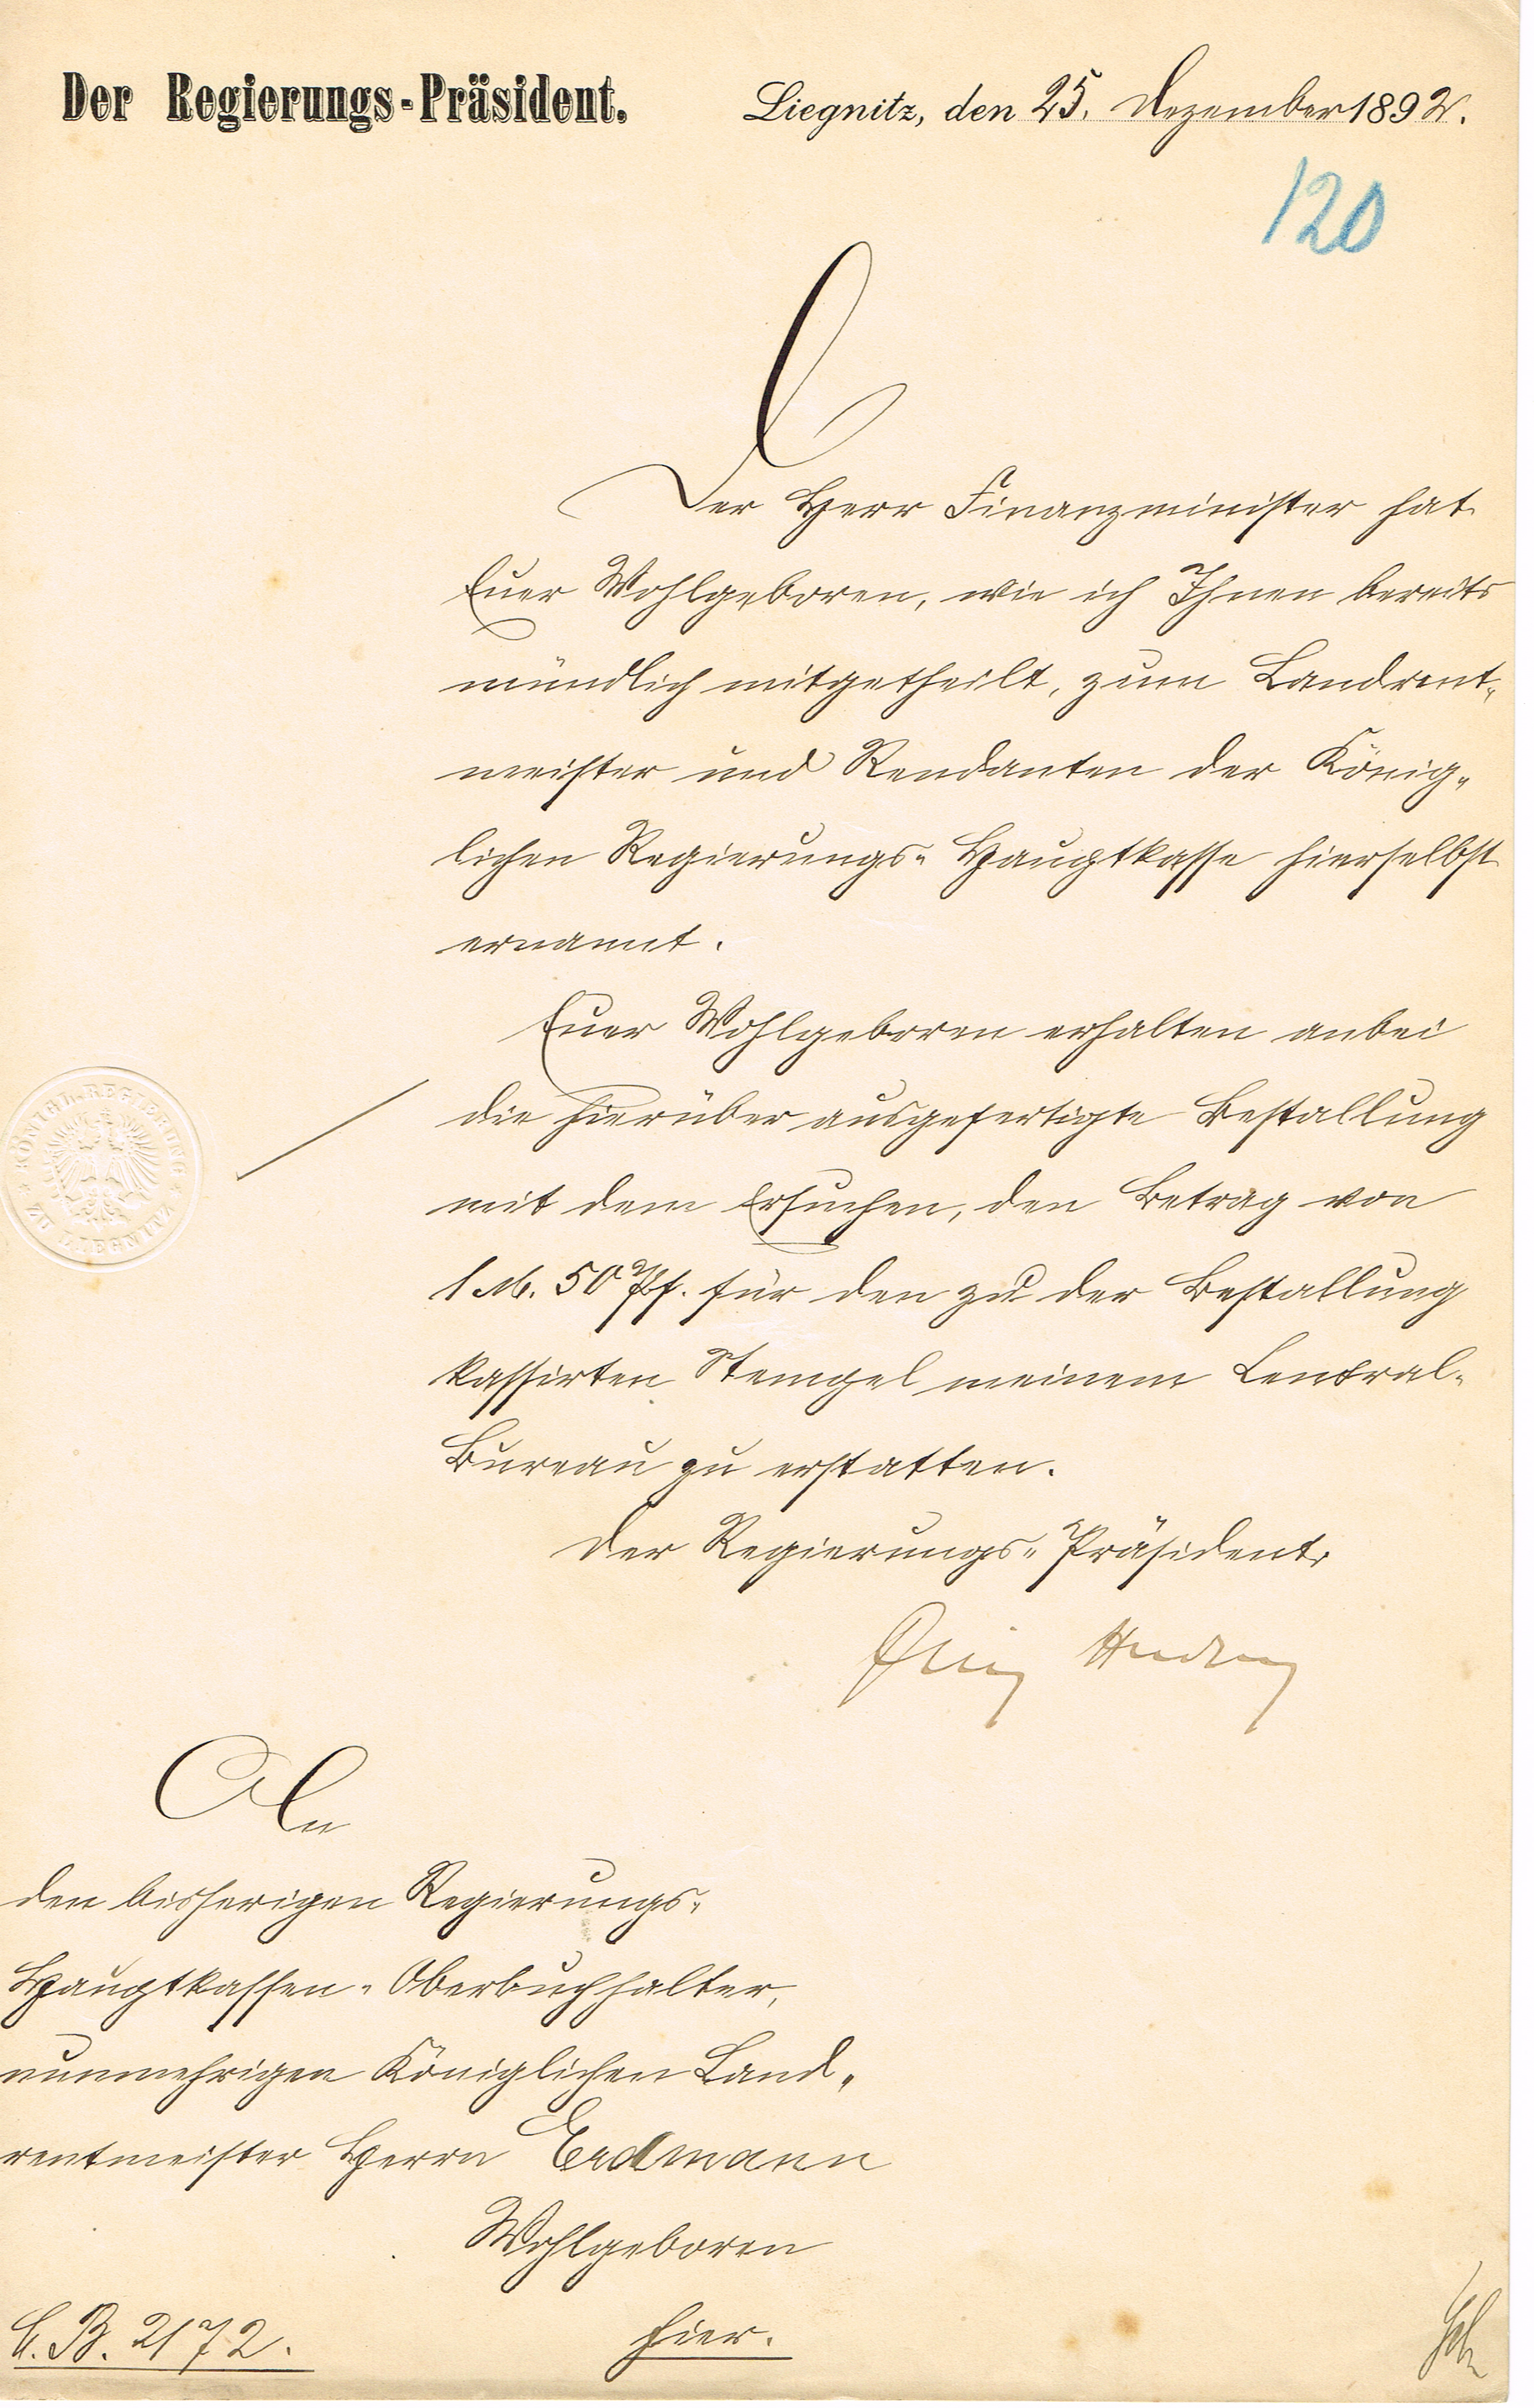 Der Regierungs-Präsident.
Liegnitz, den 25. Dezember 1892.
120
Der Herr Finanzminister hat
Euer Wohlgeboren, wie ich Ihnen bereits
mündlich mitgetheilt, zum Landrent-
meister und Rendanten der König-
lichen Regierungs-Hauptkasse hierselbst
ernannt.
Euer Wohlgeboren erhalten anbei
die hierüber ausgefertigte Bestallung
mit dem Ersuchen, den Betrag von
1 M. 50 Pf. für den zu der Bestallung
kassirten Stempel meinem Central-
Bureau zu erstatten.
Der Regierungs-Präsident.
KÖNIGL. REGIERUNG
ZU LIEGNITZ
An
den bisherigen Regierungs-
Hauptkassen-Oberbuchhalter,
nunmehrigen Königlichen Land-
rentmeister Herrn Erdmann
Wohlgeboren
hier.
C. B. 2172.